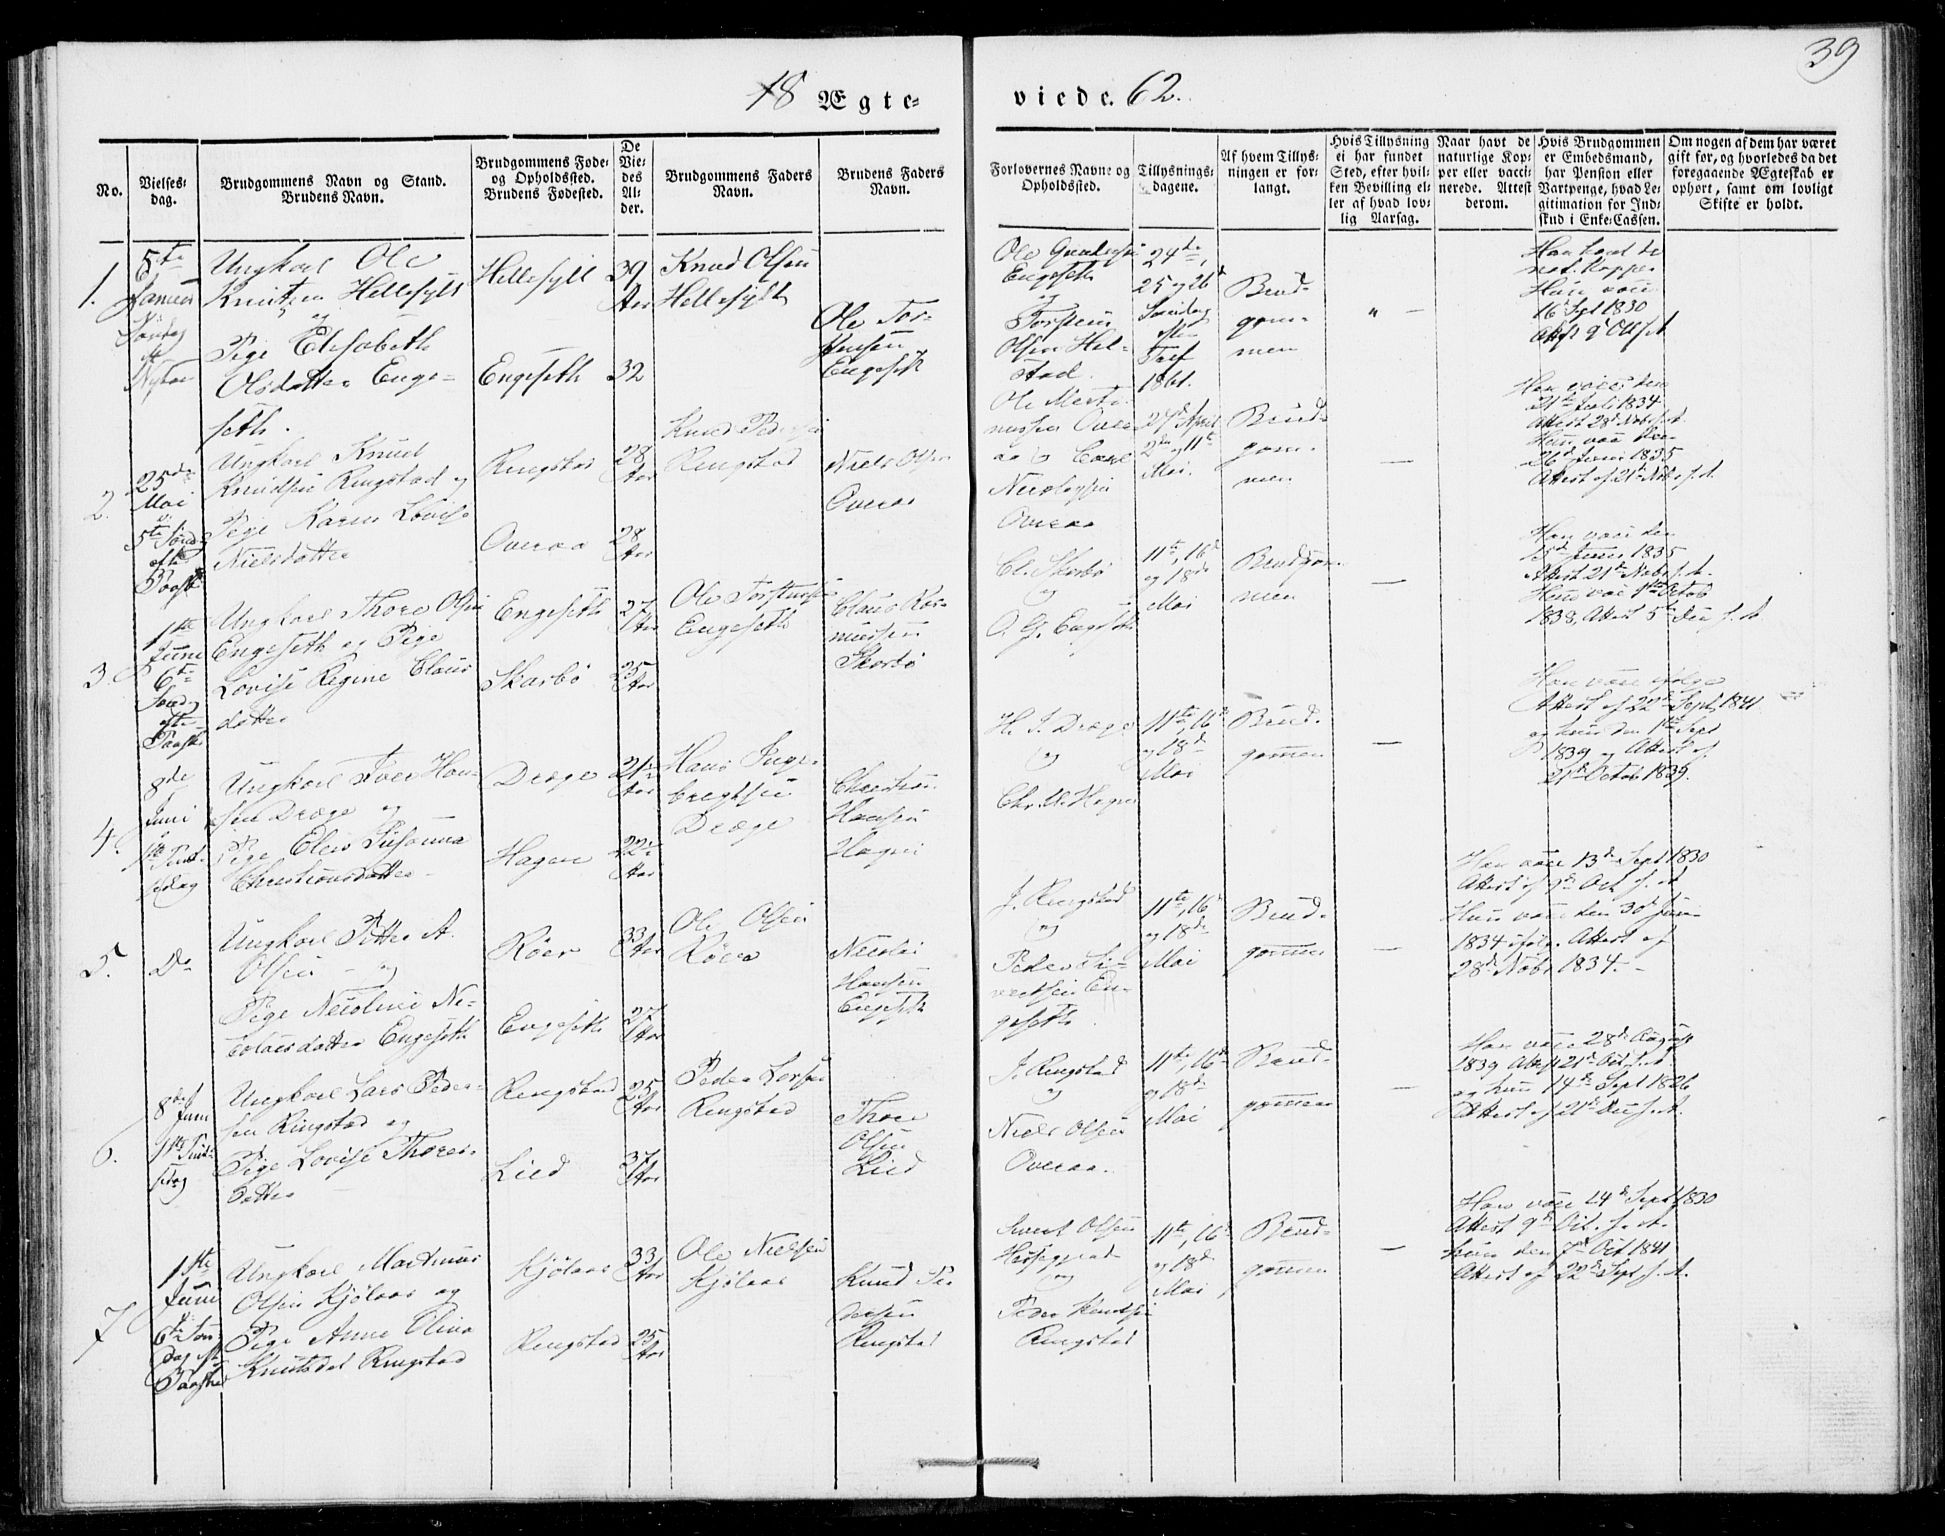 39
18 Ægte-
viede. 62.
No.
Vielses-
dag.
Brudgommens Navn og Stand.
Brudens Navn.
Brudgommens Føde-
og Opholdssted.
Brudens Fødested.
De
Vie-
des
Al-
der.
Brudgommens Faders
Navn.
Brudens Faders
Navn.
Forlovernes Navne og
Opholdssted.
Tillysnings-
dagene.
Af hvem Tillys-
ningen er for-
langt.
Hvis Tillysning
ei har fundet
Sted, efter hvil-
ken Bevilling el-
ler af hvad lov-
lig Aarsag.
Naar havt de
naturlige Kop-
per eller vacci-
nerede. Attest
derom.
Hvis Brudgommen
er Embedsmand,
har Pension eller
Vartpenge, hvad Le-
gitimation for Ind-
skud i Enke-Cassen.
Om nogen af dem har været
gift før, og hvorledes da det
foregaaende Ægteskab er
ophørt, samt om lovligt
Skifte er holdt.
1.
5te
Januar
Søndag
Nytaar
Ungkarl Ole
Knutsen Hellesylt
og
Pige Elisabeth
Olsdatter Enge-
seth.
Hellesylt
Engeseth
39
Aar
32
Knud Olsen
Hellesylt
Ole Tor-
stensen
Engeseth
Ole
Engeseth
og
Torstein
Olsen Hel-
stad.
24de,
25 og 26d
Søndag
Tref
1861.
Brud-
gom-
men
"
Han havt de
nat. Kopper
Hun vacc
16d Spt 1830
Att 9d Oct s. A
2.
25de
Mai
5te Sønd
eft
Paaske
Ungkarl Knud
Knudsen Ringstad og
Pige Karen Lovise
Nielsdatter
Ringstad
Overaa
28
Aar
28
Aar
Knud Pedersen
Ringstad
Niels Olsen
Overaa
Ole Marti-
nussen Over-
aa og
Nicolaysen
Overaa
27d April
2den og 11te
Mai.
Brud-
gom-
men
—
Han vacc den
21de Juli 1834
Attest 28d Nobr s. A.
Hun vacc den
26d Juni 1835
Attest af 21d Nobr s. A.
3.
1ste
Juni
6te
Sønd
efte
Paaske
Ungkarl Thore Olsen
Engeseth og Pige
Lovise Regine Claus-
datter
Engeseth
Skarbø
27
Aar
25
Aar
Ole Torstensen
Engeseth
Claus Ras-
mussen
Skarbø
Cl. Skarbø
og
O. G. Engeseth
11te, 16d
og 18de
Mai
Brudgom-
men
—
Han vacc den
1835
Attest 21d Nobr s. A.
Hun vac 1ste Octob
1838, Attest 5te Dec s. A
4.
8de
Juni
1ste Pint-
sedag
Ungkarl Iver Han-
sen Drage og
Pige Elen Susanna
Christiansdatter
Drage
Hagen
21
Aar
22
Aar
Hans Inge-
bregtsen
Drage
Christian
Hansen
Hagen
H. I. Drage
og
Chr. H. Hagen
11te, 16de
og 18de
Mai
Brud-
gommen
—
Han vacc ifølge
Attest af 22de Sept 1841
og hun den 1ste Sept
1839 og Attest af
21de Octob 1839.
5.
Do
Ungkarl Petter A.
Olsen og
Pige Nicoline Ni-
colaisdatter Engeseth
Røer
Engeseth
33
Aar
27
Aar
Ole Olsen
Røer
Nicolai
Hansen
Engeseth
J. Ringstad
og
Peder Si-
vertsen En-
geseth.
11te, 16d
og 18de
Mai
Brud-
gommen
—
Han vacc 13d Sept 1830
Attest af 9d Oct s. A
Hun vacc den 30d Juni
1834 ifølg. Attest af
28d Nobr 1834.
6.
8de
Juni
1ste Pint-
sedag
Ungkarl Lars Peder-
sen Ringstad og
Pige Lovise Thores-
datter
Ringstad
Lied
25
Aar
37
Aar
Peder Larsen
Ringstad
Thore
Olsen
Lied
J. Ringstad
og
Niels Olsen
Overaa.
11te, 16de
og 18de
Mai
Brud-
gommen
—
Han vacc 28d August
1839 Attest 21de Oct s. A.
og hun 14de Sept 1826
Attest af 21d s. A.
7
1ste
Juni
6te Søn
dag eft
Paaske
Ungkarl Martinus
Olsen Kjølaas og
Pige Anne Oliva
Knutsdat Ringstad
Kjølaas
Ringstad
33
Aar
25
Aar
Ole Nielsen
Kjølaas
Knud Pe
dersen
Ringstad
Sivert Olsen
og
Peder Knudsen
Ringstad
11te, 16de
og 18de
Mai
Brud-
gommen
—
Han vacc 14d Sept 1830
Attest 9d Oct. s. A.
hun den 7d Oct 1841
Attest af 22d Sept s. A.